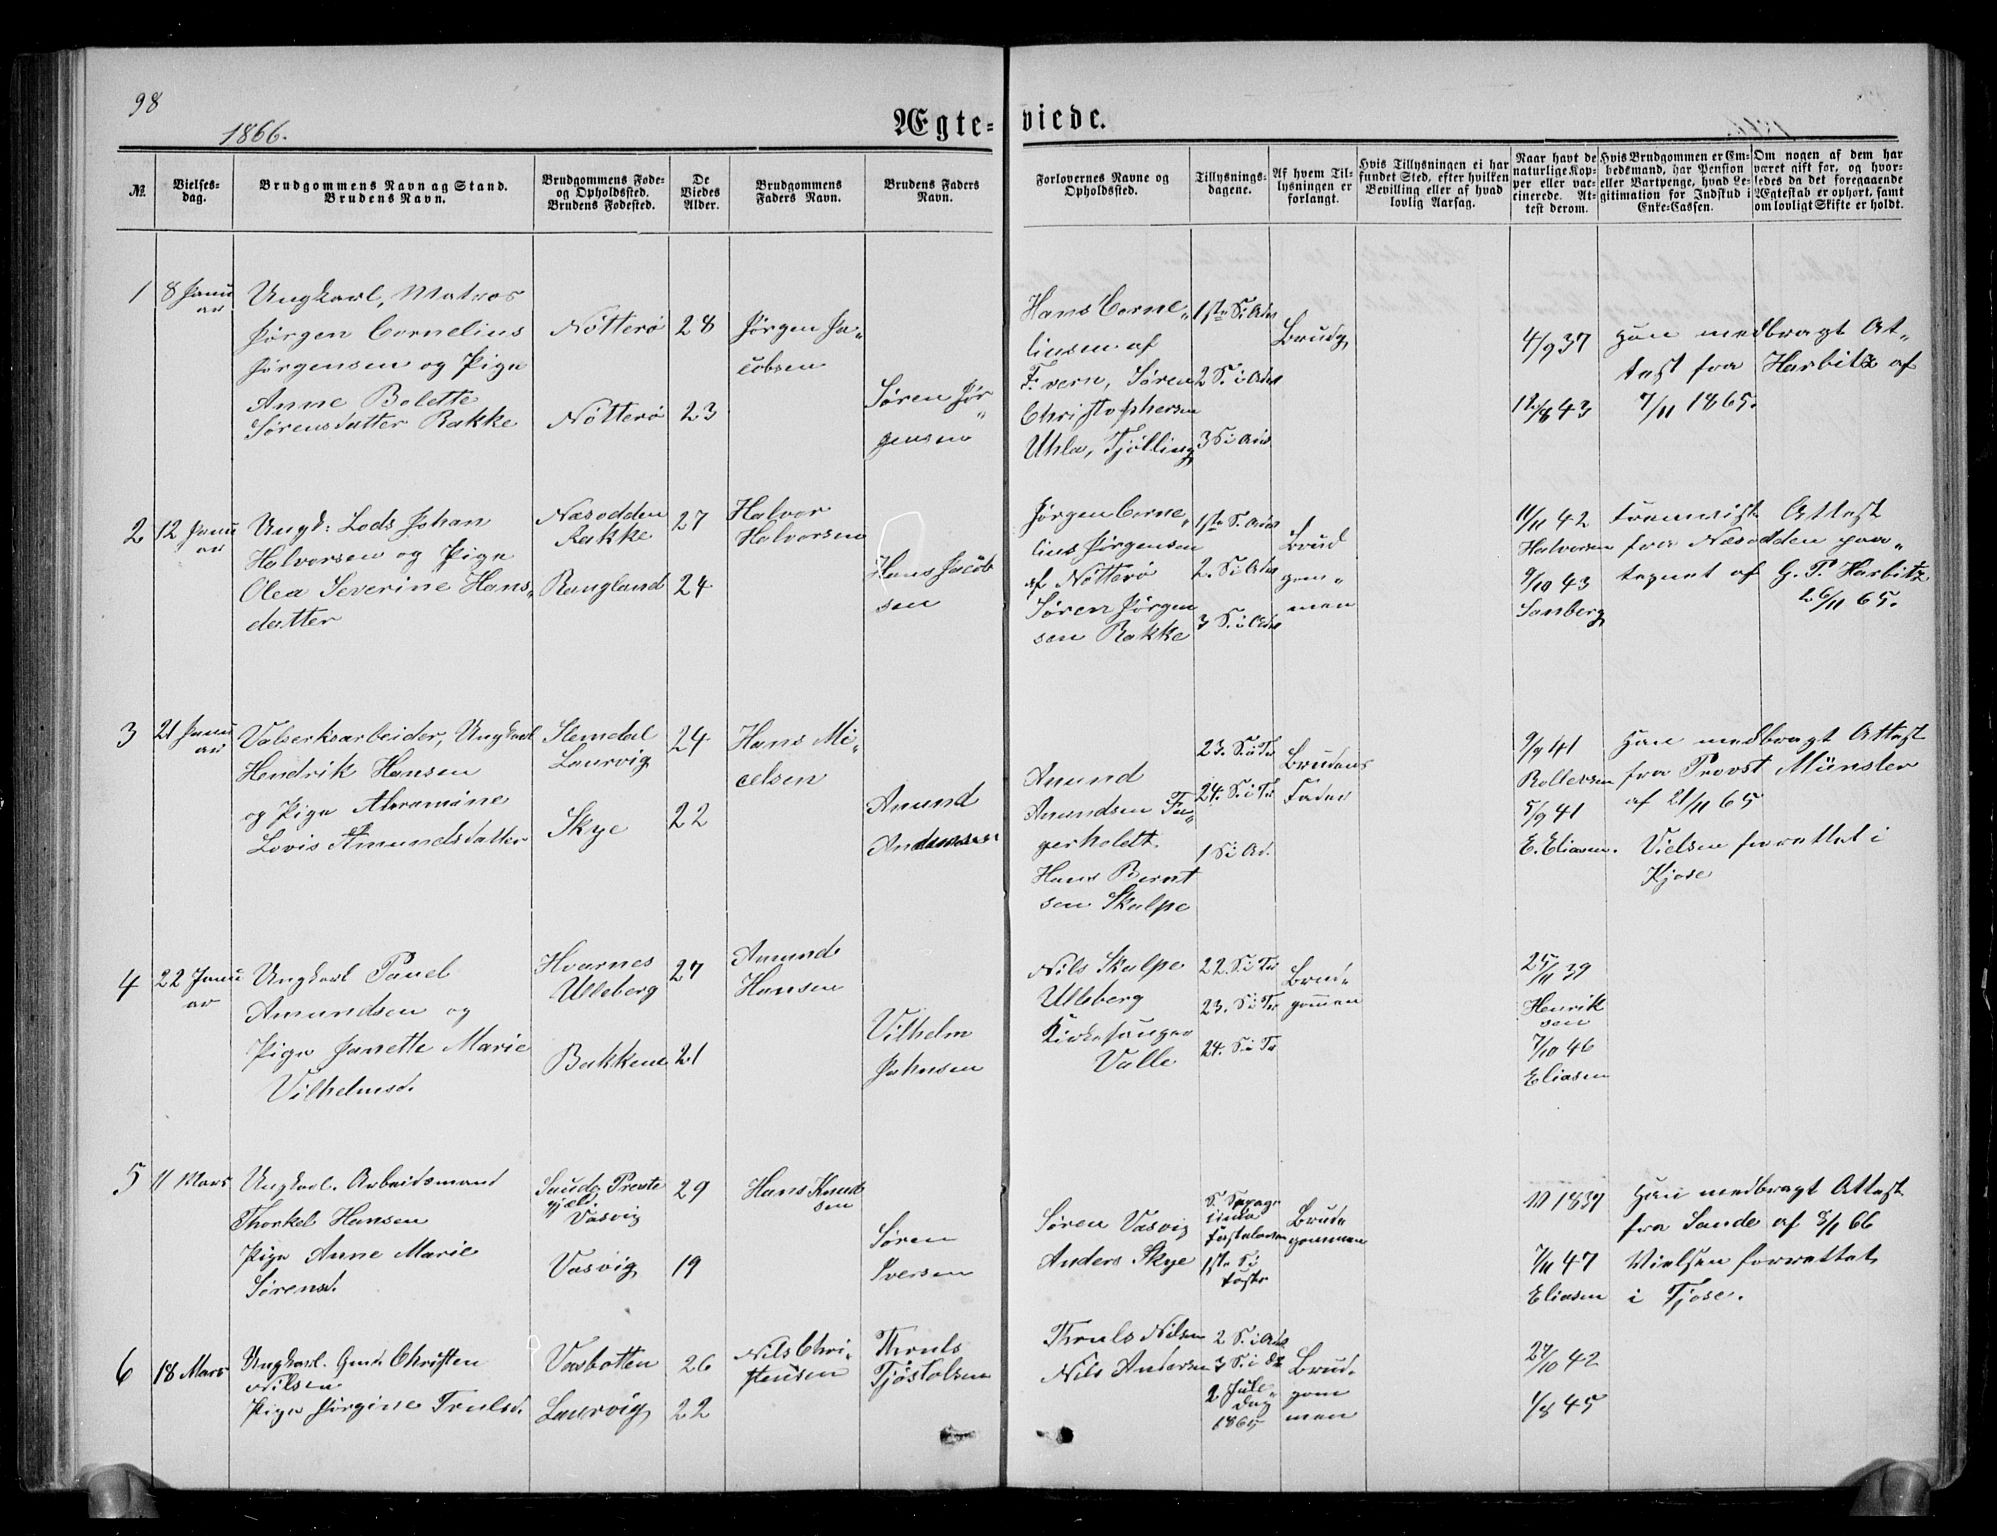 98
1866.
Ægte-
viede.
No.
Vielses-
dag.
Brudgommens Navn og Stand.
Brudens Navn.
Brudgommens Føde-
og Opholdssted.
Brudens Fødested.
De
Viedes
Alder.
Brudgommens
Faders Navn.
Brudens Faders
Navn.
Forlovernes Navne og
Opholdssted.
Tillysnings-
dagene.
Af hvem Til-
lysningen er
forlangt.
Hvis Tillysningen ei har
fundet Sted, efter hvilken
Bevilling eller af hvad
lovlig Aarsag.
Naar havt de
naturlige Kop-
per eller vac-
cinerede. At-
test derom.
Hvis Brudgommen er Em-
bedsmand, har Pension
eller Vartpenge, hvad Le-
gitimation for Indskud i
Enke-Cassen.
Om nogen af dem har
været gift før, og hvor-
ledes da det foregaaende
Ægteskab er ophørt, samt
om lovligt Skifte er holdt.
1
8 Janu
ar
Ungkarl, Matros
Jørgen Cornelius
Jørgensen og Pige
Anne Bolette
Sørensdatter Rakke
Nøtterø
Nøtterø
28
23
Jørgen Ja„
cobsen
Søren Jør
„
gensen
Hans Corne„
liusen af
Tvern, Søren
Christophersen
Uhla, Tjølling
1ste S. i Adv
2 S. i Adv
3 S i Adv
Brudg
4/9 37
12/8 43
Han medbragt At„
test fra Harbitz af
7/11 1865.
2
12 Janu
ar
Ungk: Lods Johan
Halvorsen og Pige
Olea Severine Hans„
datter
Næsodden
Rakke
Rangland
27
24
Halvor
Halvorsen
Hans Jacob
sen
Jørgen Corne„
lius Jørgensen
af Nøtterø
Søren Jørgen
sen Rakke
1ste S. Adv
2. S. i Adv
3 S. i Adv
Brud
gom„
men
11/11 42
Halvorsen
9/10 43
Sanberg
fremvist Attest
fra Næsodden paa„
tegnet af G. P. Harbitz
26/11 65.
3
21 Janu
ar
Valserksarbeider, Ungkarl
Hendrik Hansen
og Pige Abramine
Lovis Amundsdatter
Slemdal
Laurvig
Skye
24
22
Hans Mi„
celsen
Amund
Andersen
Amund
Amundsen Fa„
gerholdt.
Hans Bernt
sen Skalpe
23. S. i Tr
24. S. i Tr
1 S i Ad.
Brudens
Fader
9/9 41
Rollefsen
5/9 41
E. Eliasen.
Han medbragt Attest
fra Provst Münster
af 21/11 65
Vielsen forrettet i
Kjose
4
22 Janu
ar
Ungkarl Paul
Amundsen og
Pige Janette Marie
Vilhelmsd.
Hvarnes
Ulleberg
Bakkene
27
21
Amund
Hansen
Vilhelm
Johnsen
Nils Skalpe
Ulleberg
Kirkesanger
Valle
22. S. i Tr
23. S. i Tr
24. S. i Tr
Brud„
gommen
25/11 39
Henrik
sen
7/10 46
Eliasen
5
11 Mars
Ungkarl. Arbeidsmand
Thorkel Hansen
Pige Anne Marie
Sørensd.
Saude Preste
gjeld.
Vasvig
Vasvig
29
19
Hans Knud
sen
Søren
Iversen
Søren Vasvig
Anders Skye
S. Sexage
sima
Fastelavn
1ste S. i
Faste
Brud„
gommen
1839
7/11 47
Eliasen
Han medbragt Attest
fra Sande af 8/11 66
Vielsen forrettet
i Tjose.
6
18 Mars
Ungkarl. Gmd. Christen
Nilsen
Pige Jørgine Trulsd.
Vasbotten
Laurvig
26
22
Nils Chri„
stensen
Thruls
Tjøstolsen
Thruls Nilsen
Nils Andersen
2 S. i Adv.
3 S. i do
2. Jule„
dag
1865
Brud„
gom
men
27/10 42
1/8 45